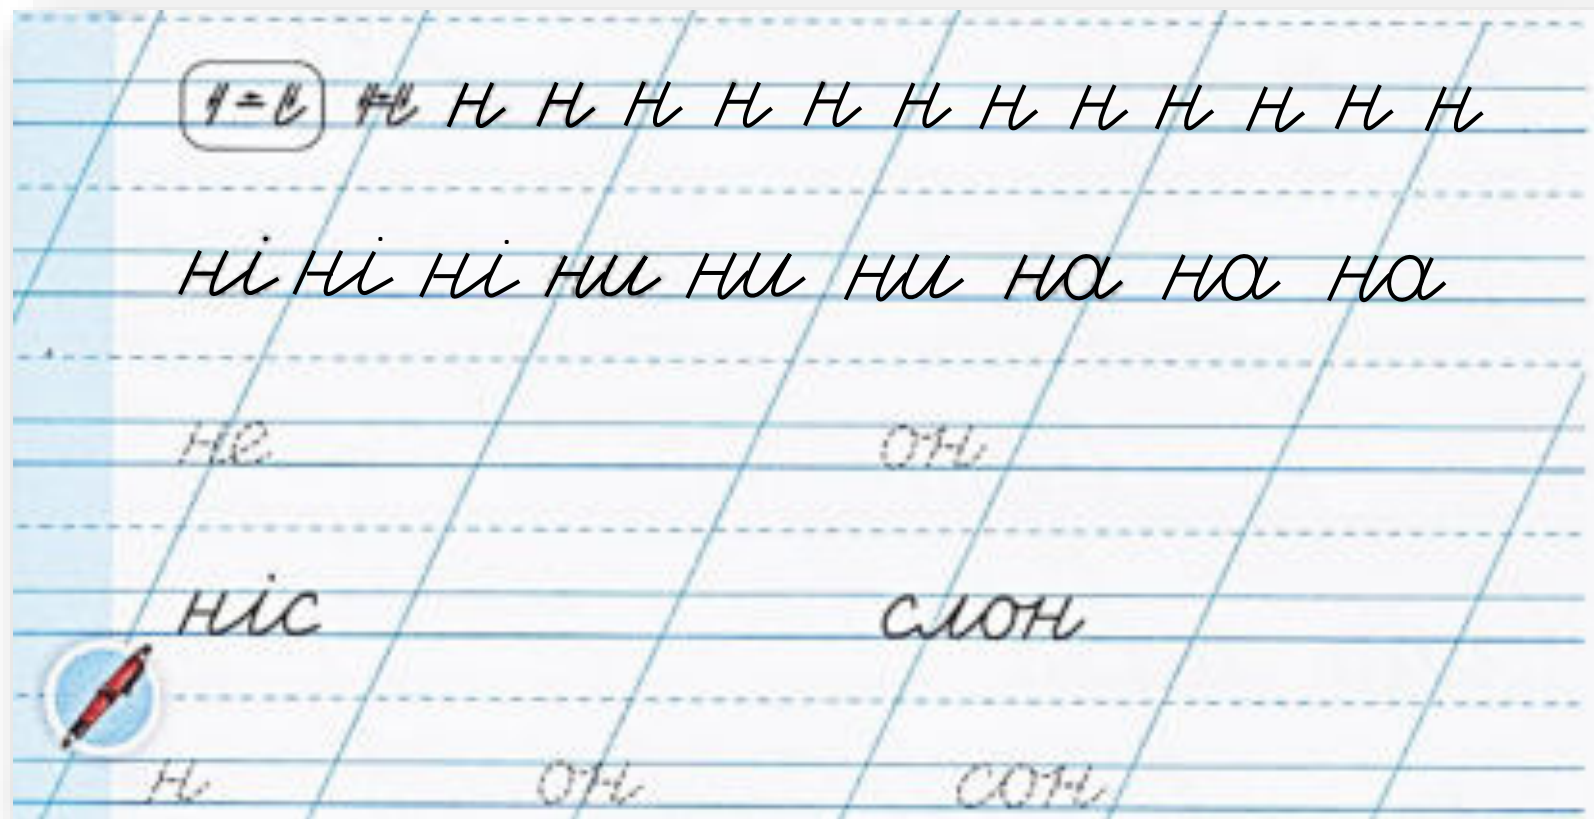 н н н н н н н н н н н н н
ні ні ні ни ни ни на на на
не он
ніс слон
н он сон